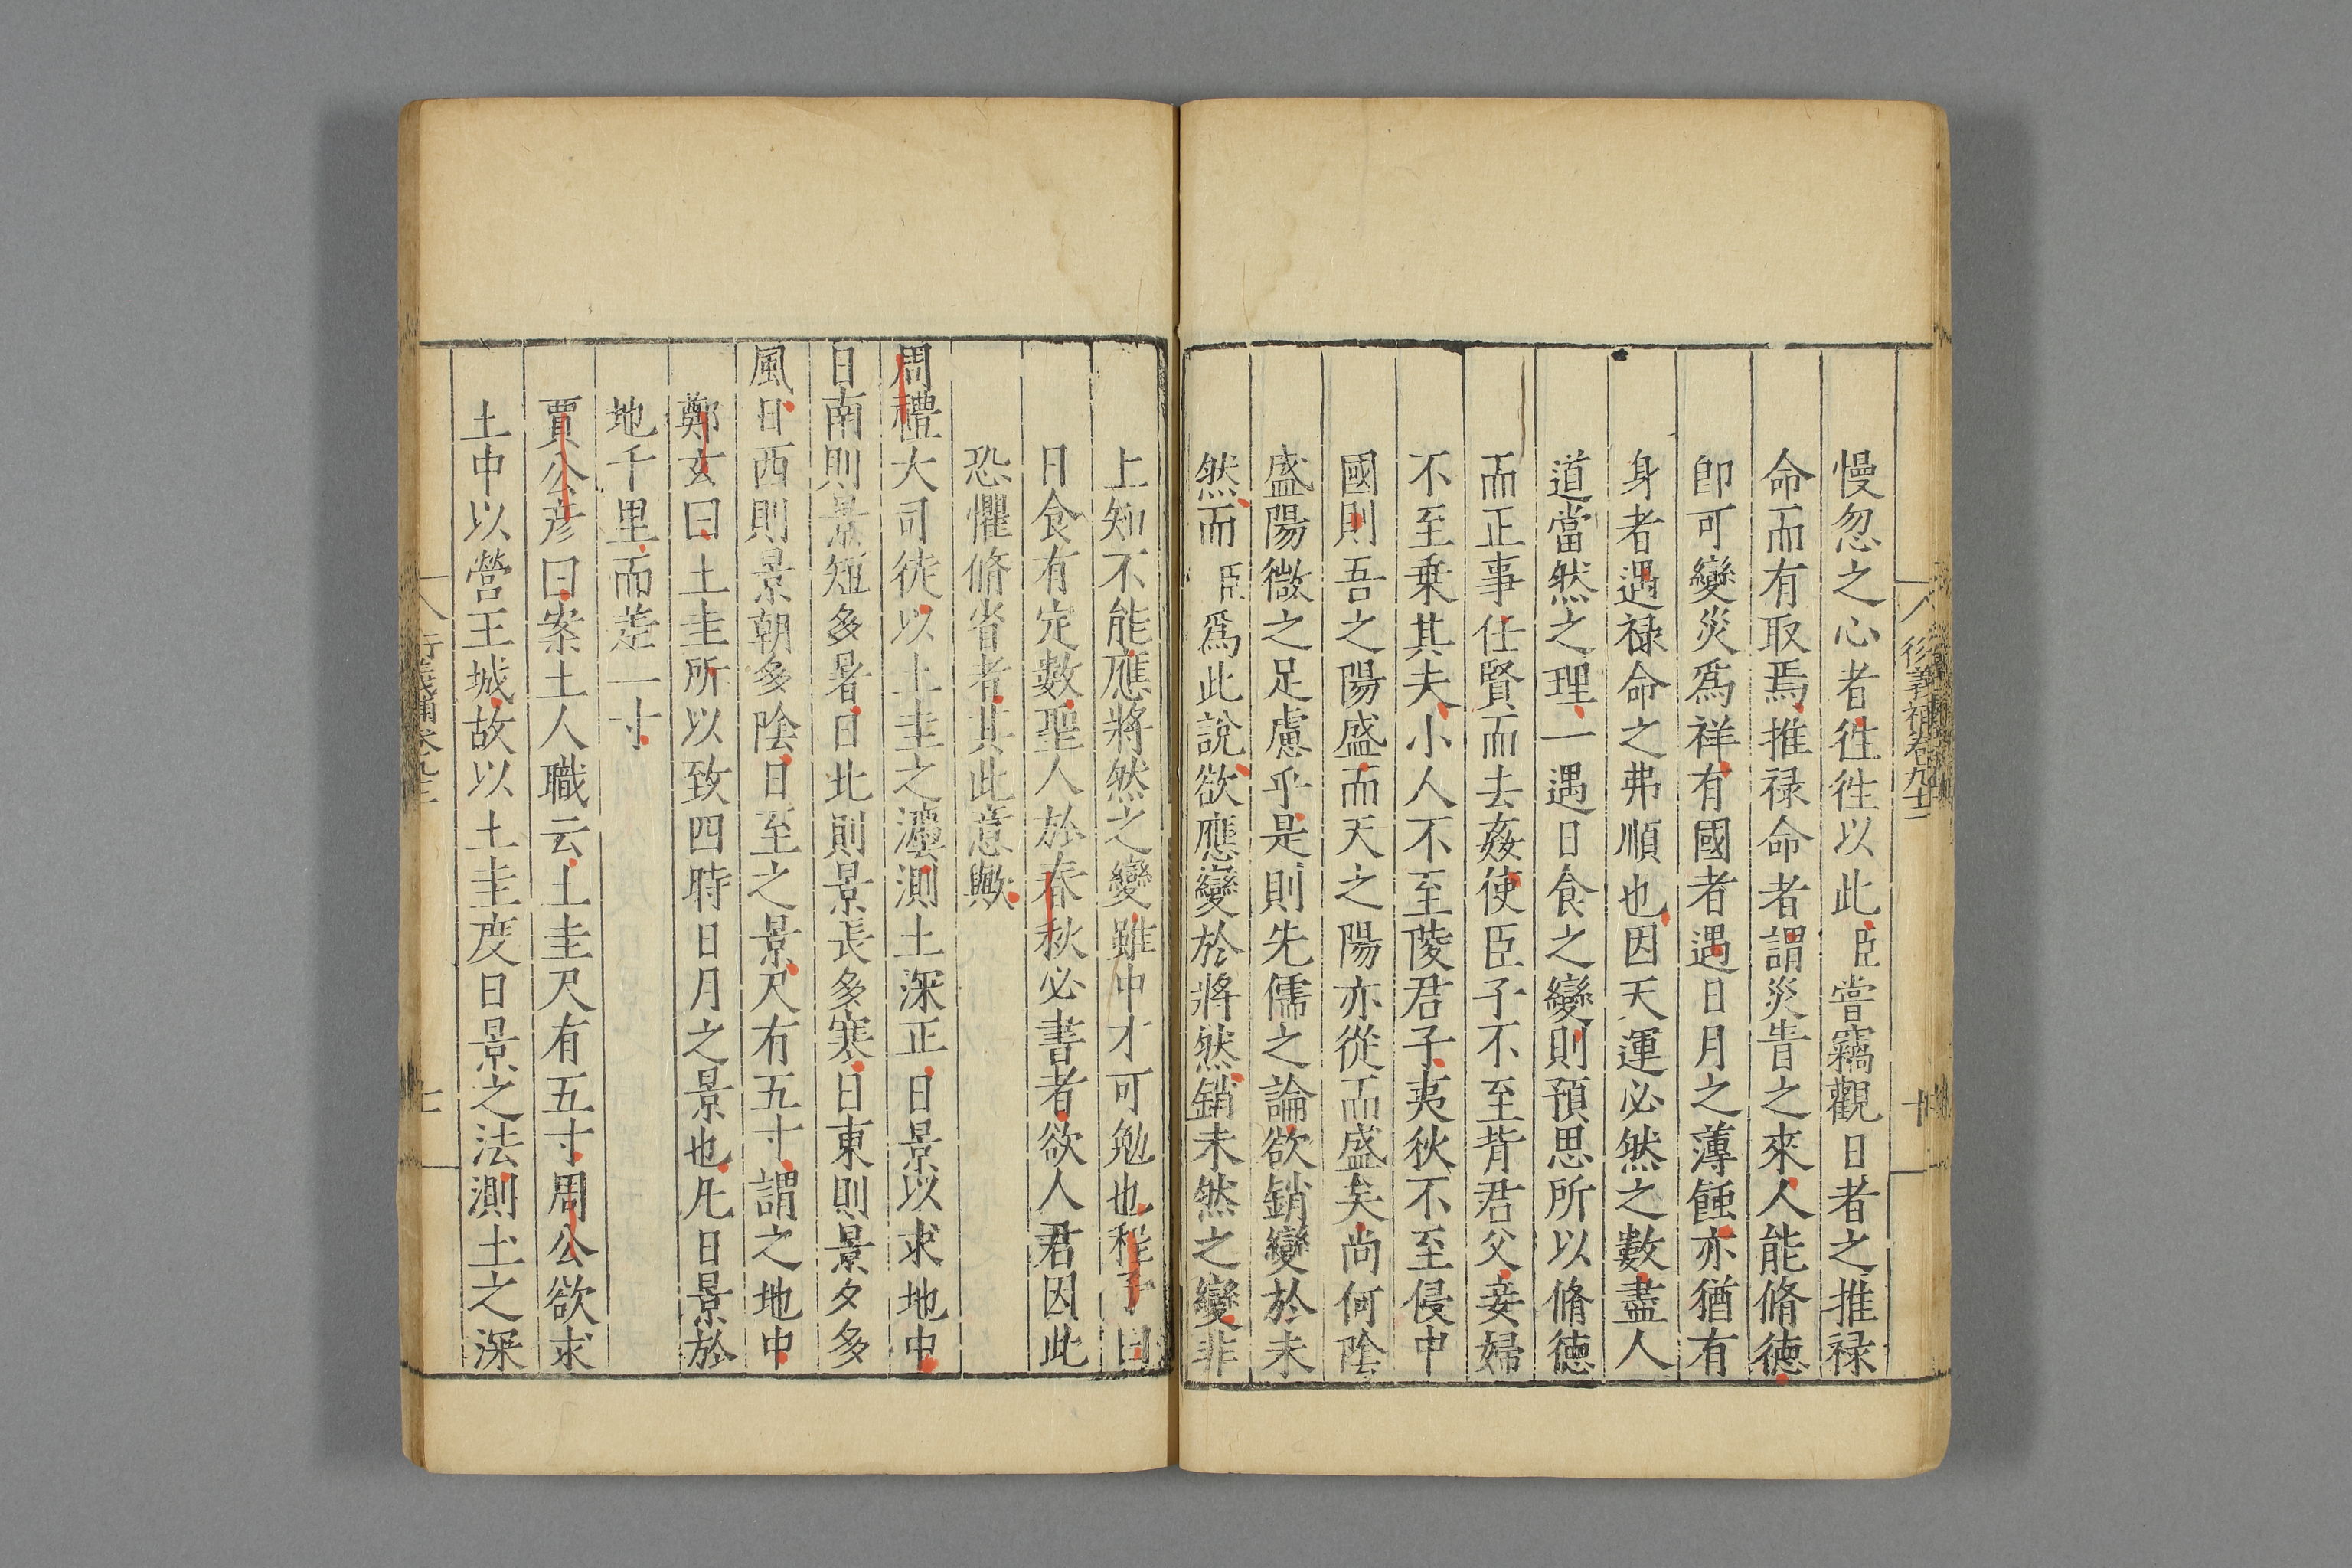 慢忽之心者徃徃以此臣嘗竊觀日者之推禄
命而有取焉推禄命者謂災眚之來人能脩德
即可變災爲祥有國者遇日月之薄蝕亦猶有
身者遇禄命之弗順也因天運必然之數盡人
道當然之理一遇日食之變則預思所以脩德
而正事任賢而去姦使臣子不至背君父妾婦
不至乗其夫小人不至陵君子夷狄不至侵中
國則吾之陽盛而天之陽亦從而盛矣尚何陰
盛陽微之足慮乎是則先儒之論欲銷變於未
然而臣爲此說欲應變於將然銷未然之變非
上知不能應將然之變雖中才可勉也程子曰
日食有定數聖人於春秋必書者欲人君因此
恐懼脩省者其此意歟
周禮大司徒以土圭之灋測土深正日景以求地中
日南則景短多暑日北則景長多寒日東則景夕多
風日西則景朝多陰日至之景尺有五寸謂之地中
鄭玄曰土圭所以致四時日月之景也凡日景於
地千里而差一寸
賈公彦曰案土人職云土圭尺有五寸周公欲求
土中以營王城故以土圭度日景之法測土之深